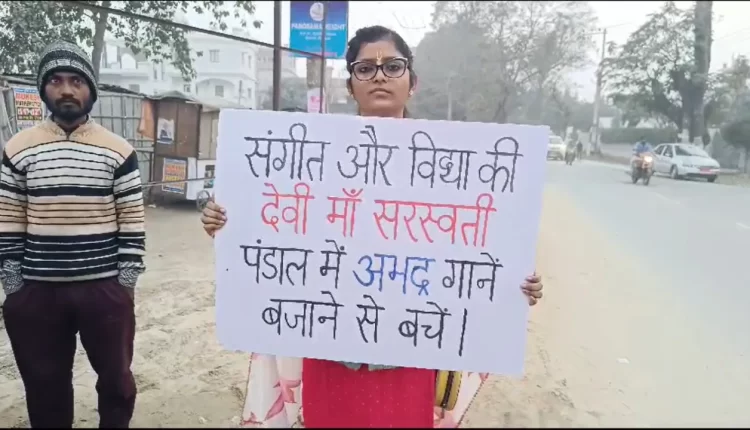 PANORAMA HEIGHT
संगीत और विद्या की
देवी माँ सरस्वती
पंडाल में अभद्र गानें
बजाने से बचें।